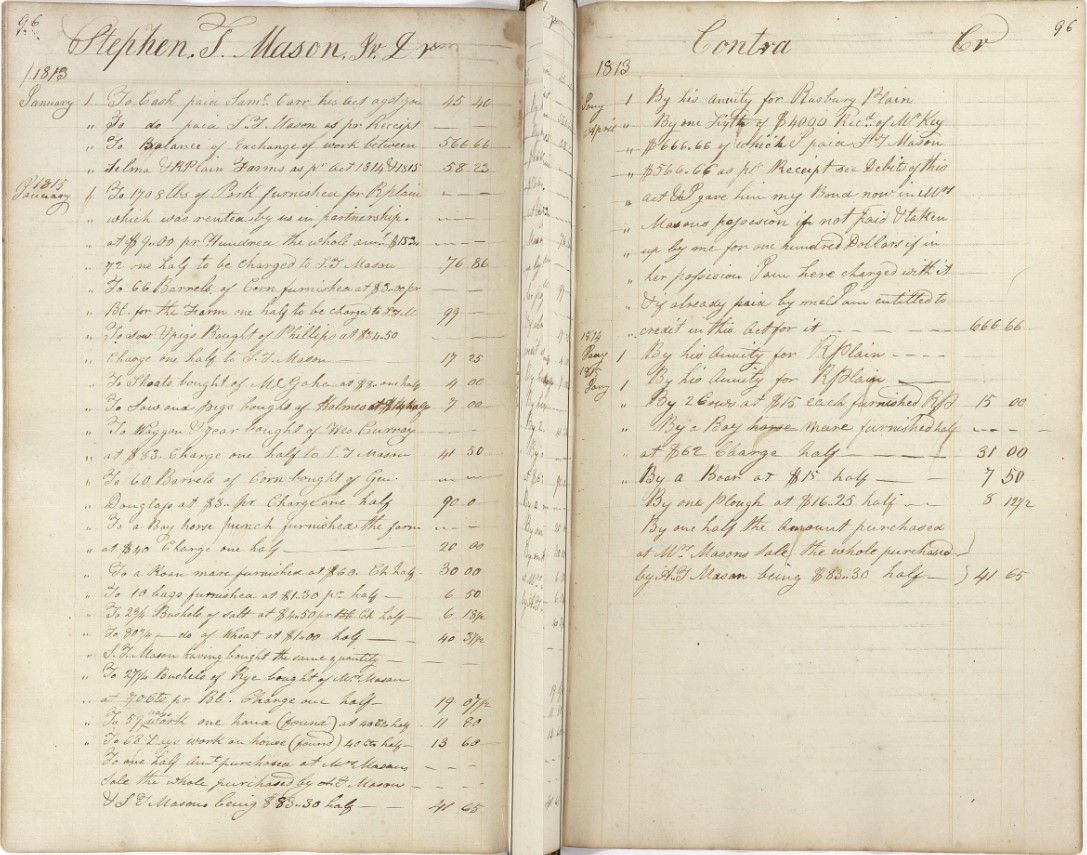 96
Stephen. T. Mason. Jr. Dr
1813
January 1 To Cash paid Saml. Carr his act agst you 45 46
" To do paid S. T. Mason as pr Receipt — —
" To Balance of Exchange of work between 566 66
" Selma & RPlain Farms as pr act 1814 & 1815 58 23
1815
January 1 To 1708 lbs of Pork furnished for RPlain
" which was rented by us in partnership. — —
" at $9.00 pr Hundred the whole amt. $153
" 72 one half to be charged to S. T Mason 76.86
" To 66 Barrels of Corn furnished at $3.00 pr
" Bl. for the Farm one half to be charged to S.T.M. 99 —
" To Sow & pigs Bought of Phillips at $34.50
" Charge one half to S. T Mason — 17 25
" To Shoats bought of McGaha at $8. one half 4 00
" To Sow and Pigs bought of Holmes at $14 half 7 00
" To Waggon & Gear bought of Geo Curray
" at $83. Charge one half to S. T Mason 41 50
" To 60 Barrels of Corn bought of Gen. — —
Douglass at $3. pr Charge one half 90 0
" To a Bay horse punch furnished the farm — —
" at $40 Charge one half — 20 00
" To a Roan mare furnished at $60. Ch half 30 00
" To 10 bags furnished at $1.30 pr half — 6 50
" To 2¾ Bushels of salt at $4.50 pr Ch half — 6 18½
" To 80¾ — do of Wheat at $1.00 half — 40 37½
" S. T. Mason having bought the same quantity — — —
" To 27¼ Buchels of Rye bought of Mrs Mason
" at 70 Cts pr Bl. Charge one half — 19 07½
" To 59 days work one hand (found) at 40 cts half — 11 80
" To 68 Days work on house (found) 40 cts half — 13 60
To one half amt purchased at Mrs Masons — —
Sale the whole purchased by A T Mason — —
& S T Masons being $83.30 half — — 41 65
96
Contra Cr
1813
Jany 1 By his Anuity for Rasbury Plain
April " By one Fifth of $4000 Recd. of McKey
" $666.66 of which I paid S T Mason
" $566.66 as pr Receipt see Debits of this
" act & I gave him my Bond now in Mrs
" Masons possession if not paid & taken
" up by me for one hundred Dollars if in
" her possission I am here charged with it
" & if already paid by me I am entitled to
" credit in this Act for it — — — 666 66
1814
Jany 1 By his Anuity for RPlain — — — —
1815
Jany 1 By his Anuity for RPlain —
" By 2 Cows at $15 each furnished RP 15 00
" By a Bay horse mare furnished half — — —
" at $62 Charge half — 31 00
" By a Boar at $15 half — — 7 50
By one Plough at $16.25 half — — 8 12½
By one half the Amount purchased
at Mrs Masons Sale, the whole purchased
by A. T Mason being $83.30 half — 41 65